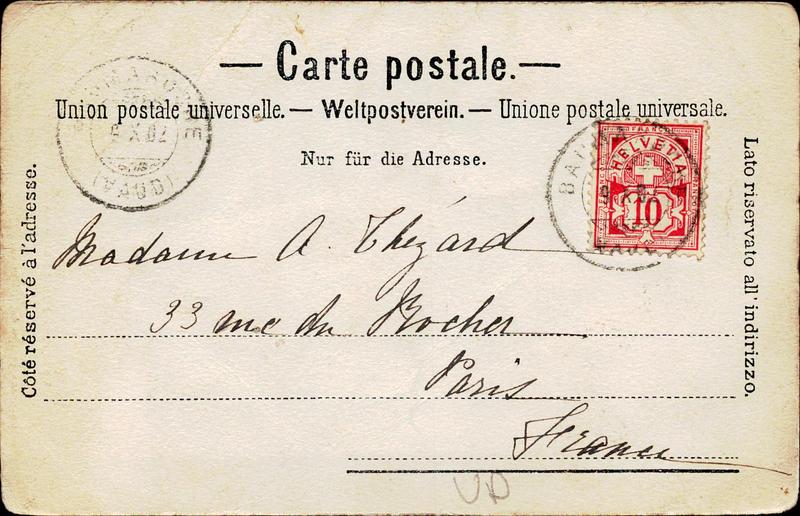 — Carte postale. —
Union postale universelle. — Weltpostverein. — Unione postale universale.
Nur für die Adresse.
Côté réservé à l'adresse.
Lato riservato all' indirizzo.
(VAUD)
HELVETIA
10
Madame A. Thézard
33 rue du Rocher
Paris
France
VD